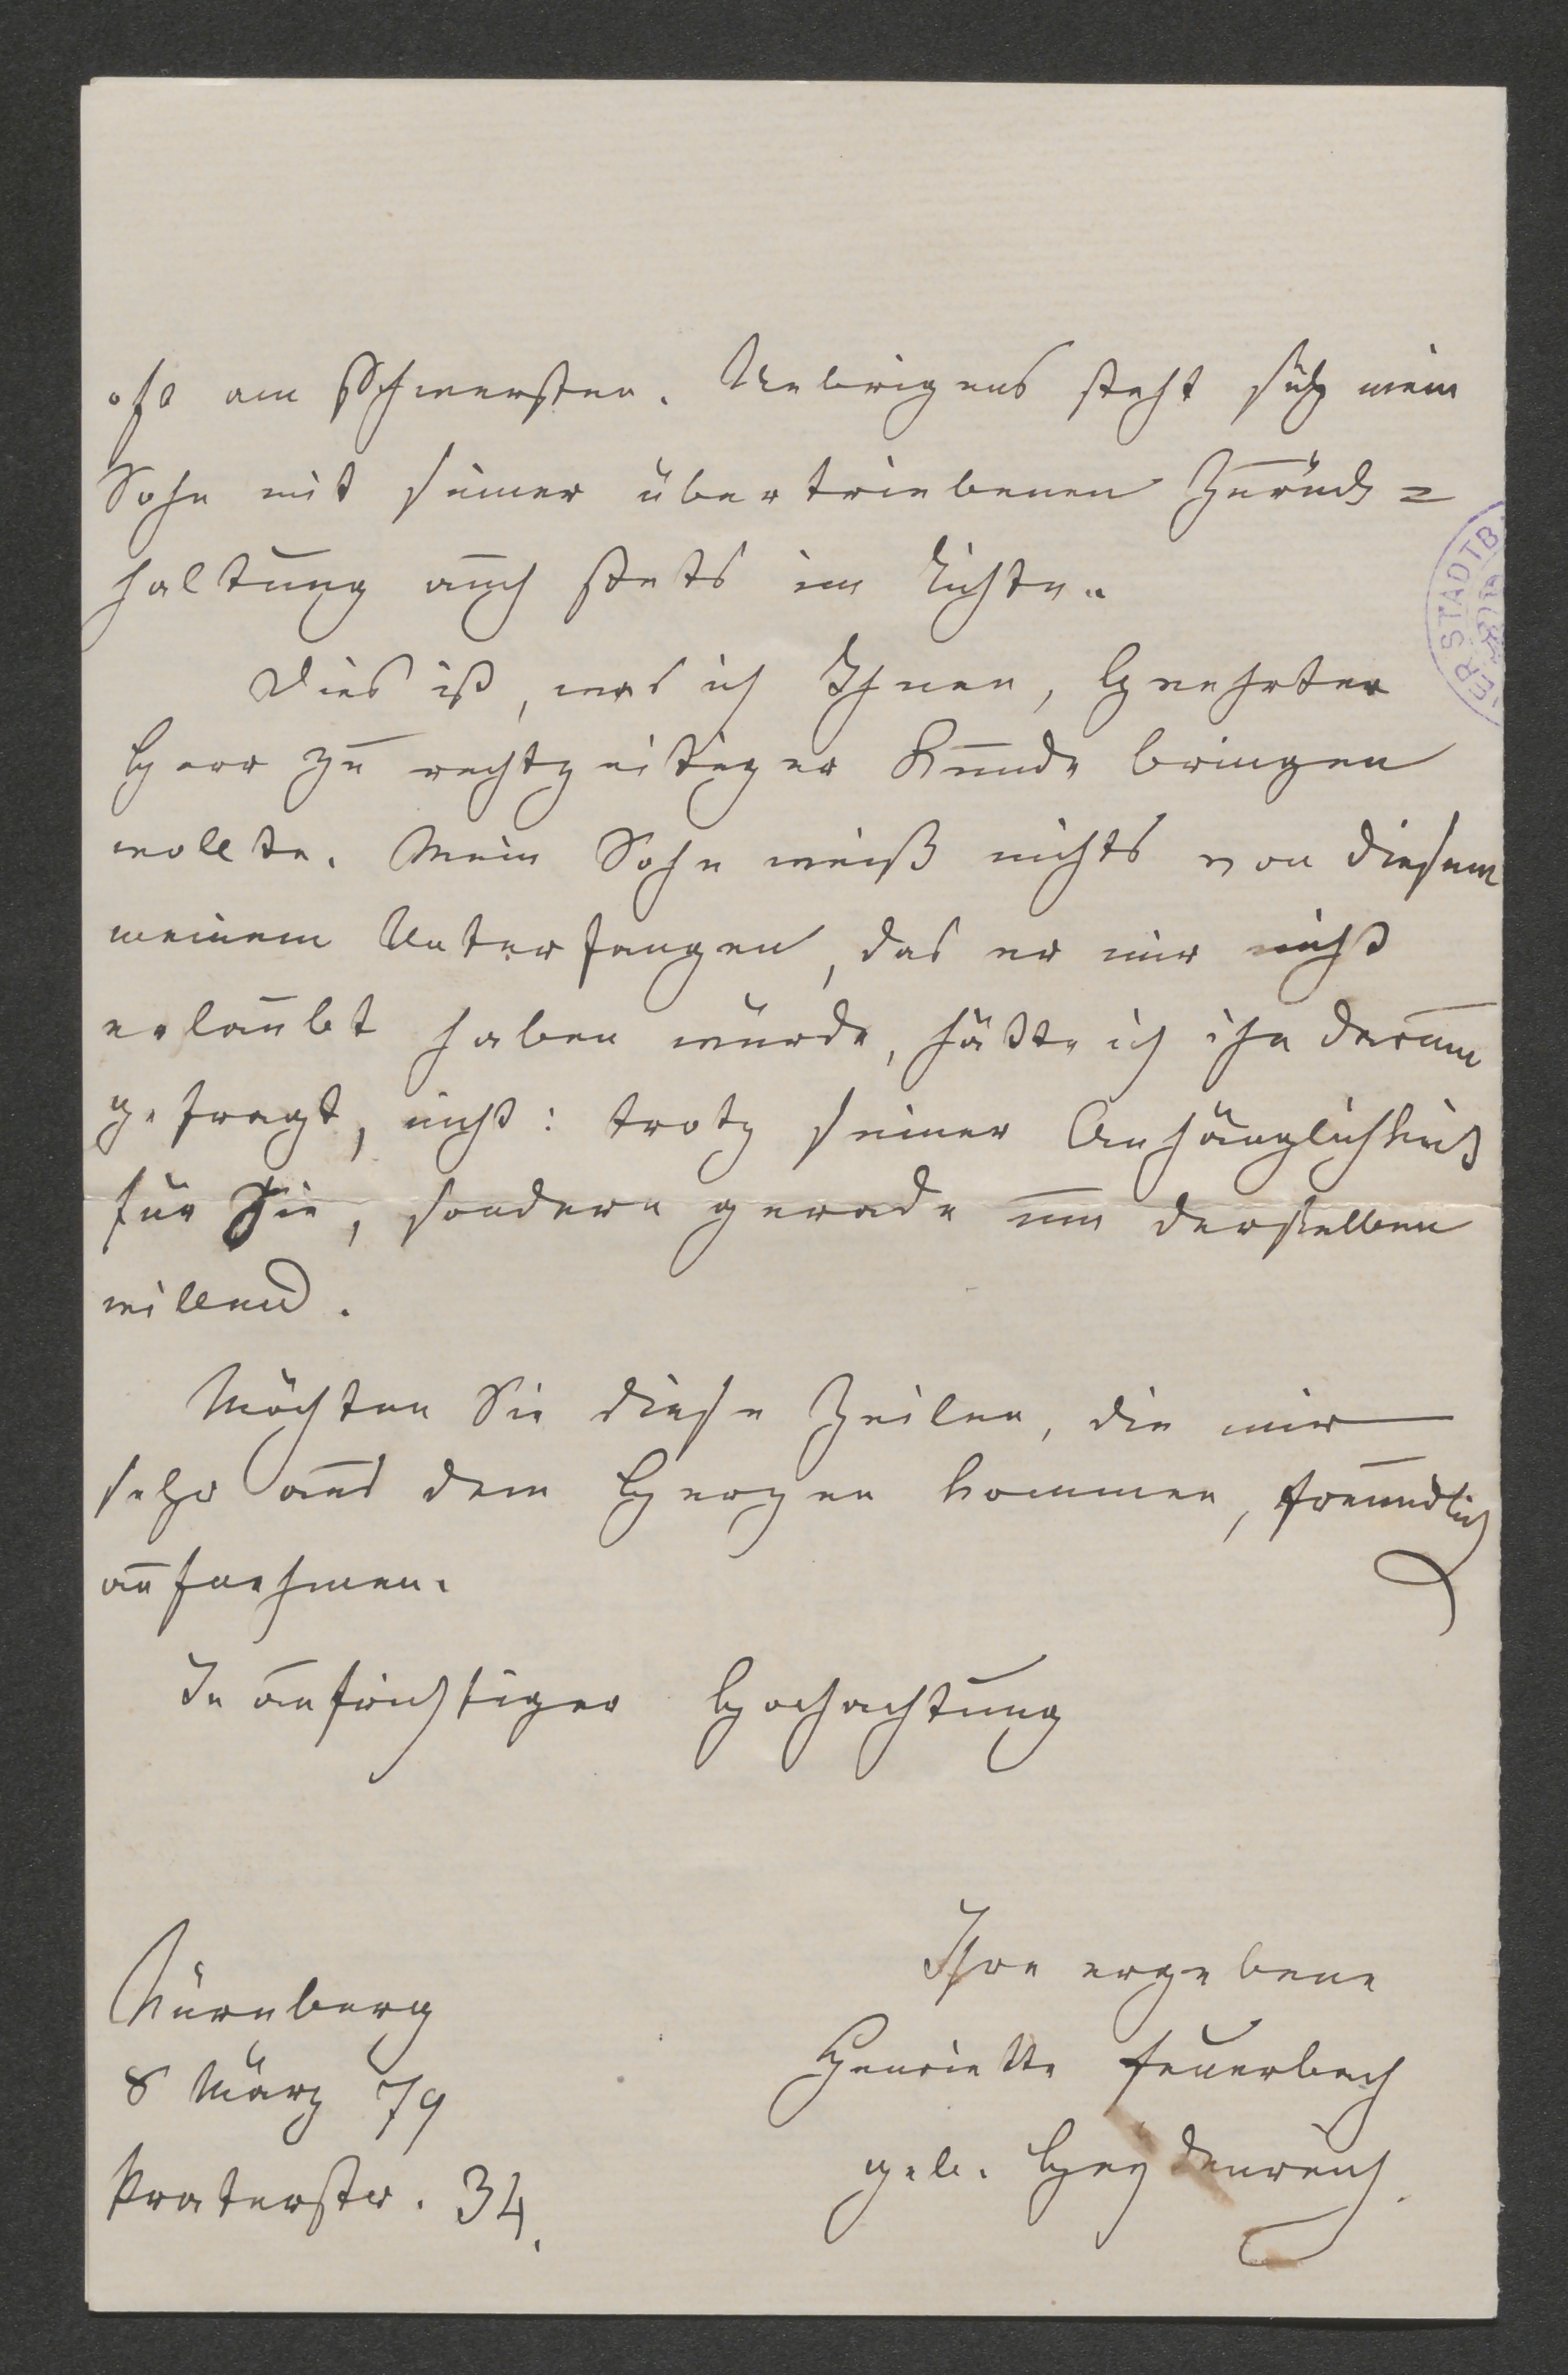 oft am Schwersten. Uebrigens steht sich mein
Sohn mit seiner übertriebenen Zurück=
haltung auch stets im Lichte.
Dies ist, was ich Ihnen, Geehrter
Herr zu rechtzeitiger Kunde bringen
wollte. Mein Sohn weiß nichts von diesem
meinem Unterfangen, das er mir nicht
erlaubt haben würde, hätte ich ihn darum
gefragt, nicht: trotz seiner Anhänglichkeit
für Sie, sondern gerade um derselben
willen.
Möchten Sie diese Zeilen, die mir
sehr aus dem Herzen kommen, freundlich
aufnehmen.
In aufrichtiger Hochachtung
Ihre ergebene
Henriette Feuerbach
geb. Heydenreich.
Nürnberg
8 März 79
Praterstr. 34.
ER STADTB